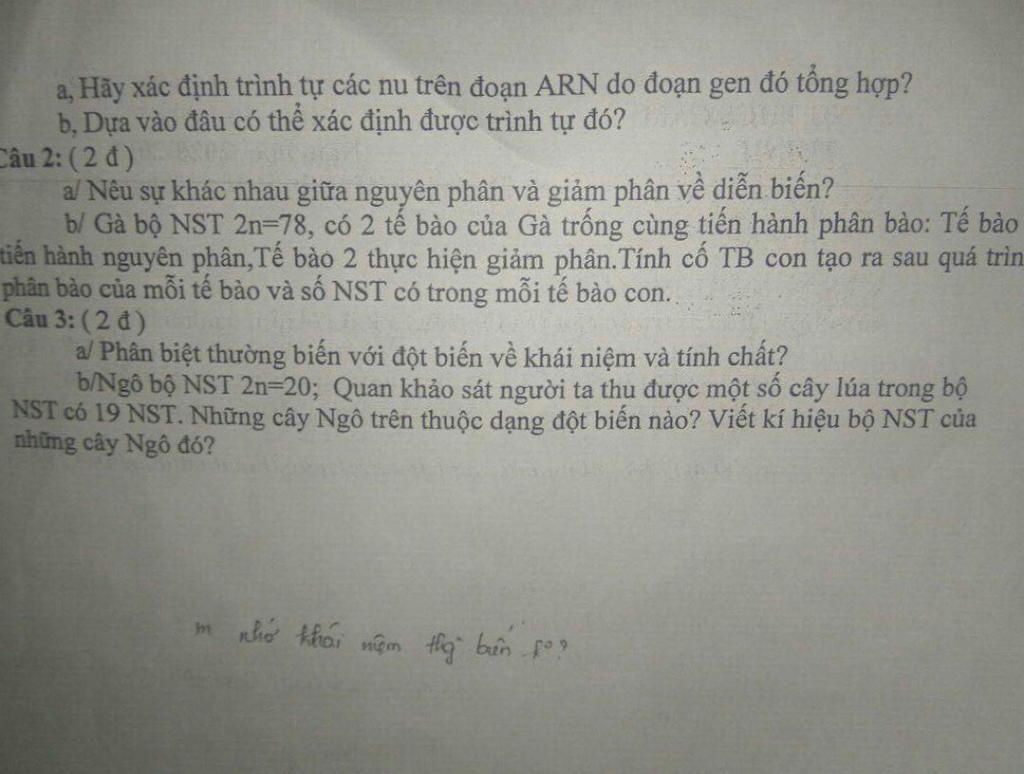 a, Hãy xác định trình tự các nu trên đoạn ARN do đoạn gen đó tổng hợp?
b, Dựa vào đâu có thể xác định được trình tự đó?
Câu 2: ( 2 đ )
a/ Nêu sự khác nhau giữa nguyên phân và giảm phân về diễn biến?
b/ Gà bộ NST 2n=78, có 2 tế bào của Gà trống cùng tiến hành phân bào: Tế bào
tiến hành nguyên phân,Tế bào 2 thực hiện giảm phân.Tính cố TB con tạo ra sau quá trìn
phân bào của mỗi tế bào và số NST có trong mỗi tế bào con.
Câu 3: ( 2 đ )
a/ Phân biệt thường biến với đột biến về khái niệm và tính chất?
b/Ngô bộ NST 2n=20; Quan khảo sát người ta thu được một số cây lúa trong bộ
NST có 19 NST. Những cây Ngô trên thuộc dạng đột biến nào? Viết kí hiệu bộ NST của
những cây Ngô đó?
m nhớ khái niệm thg biến